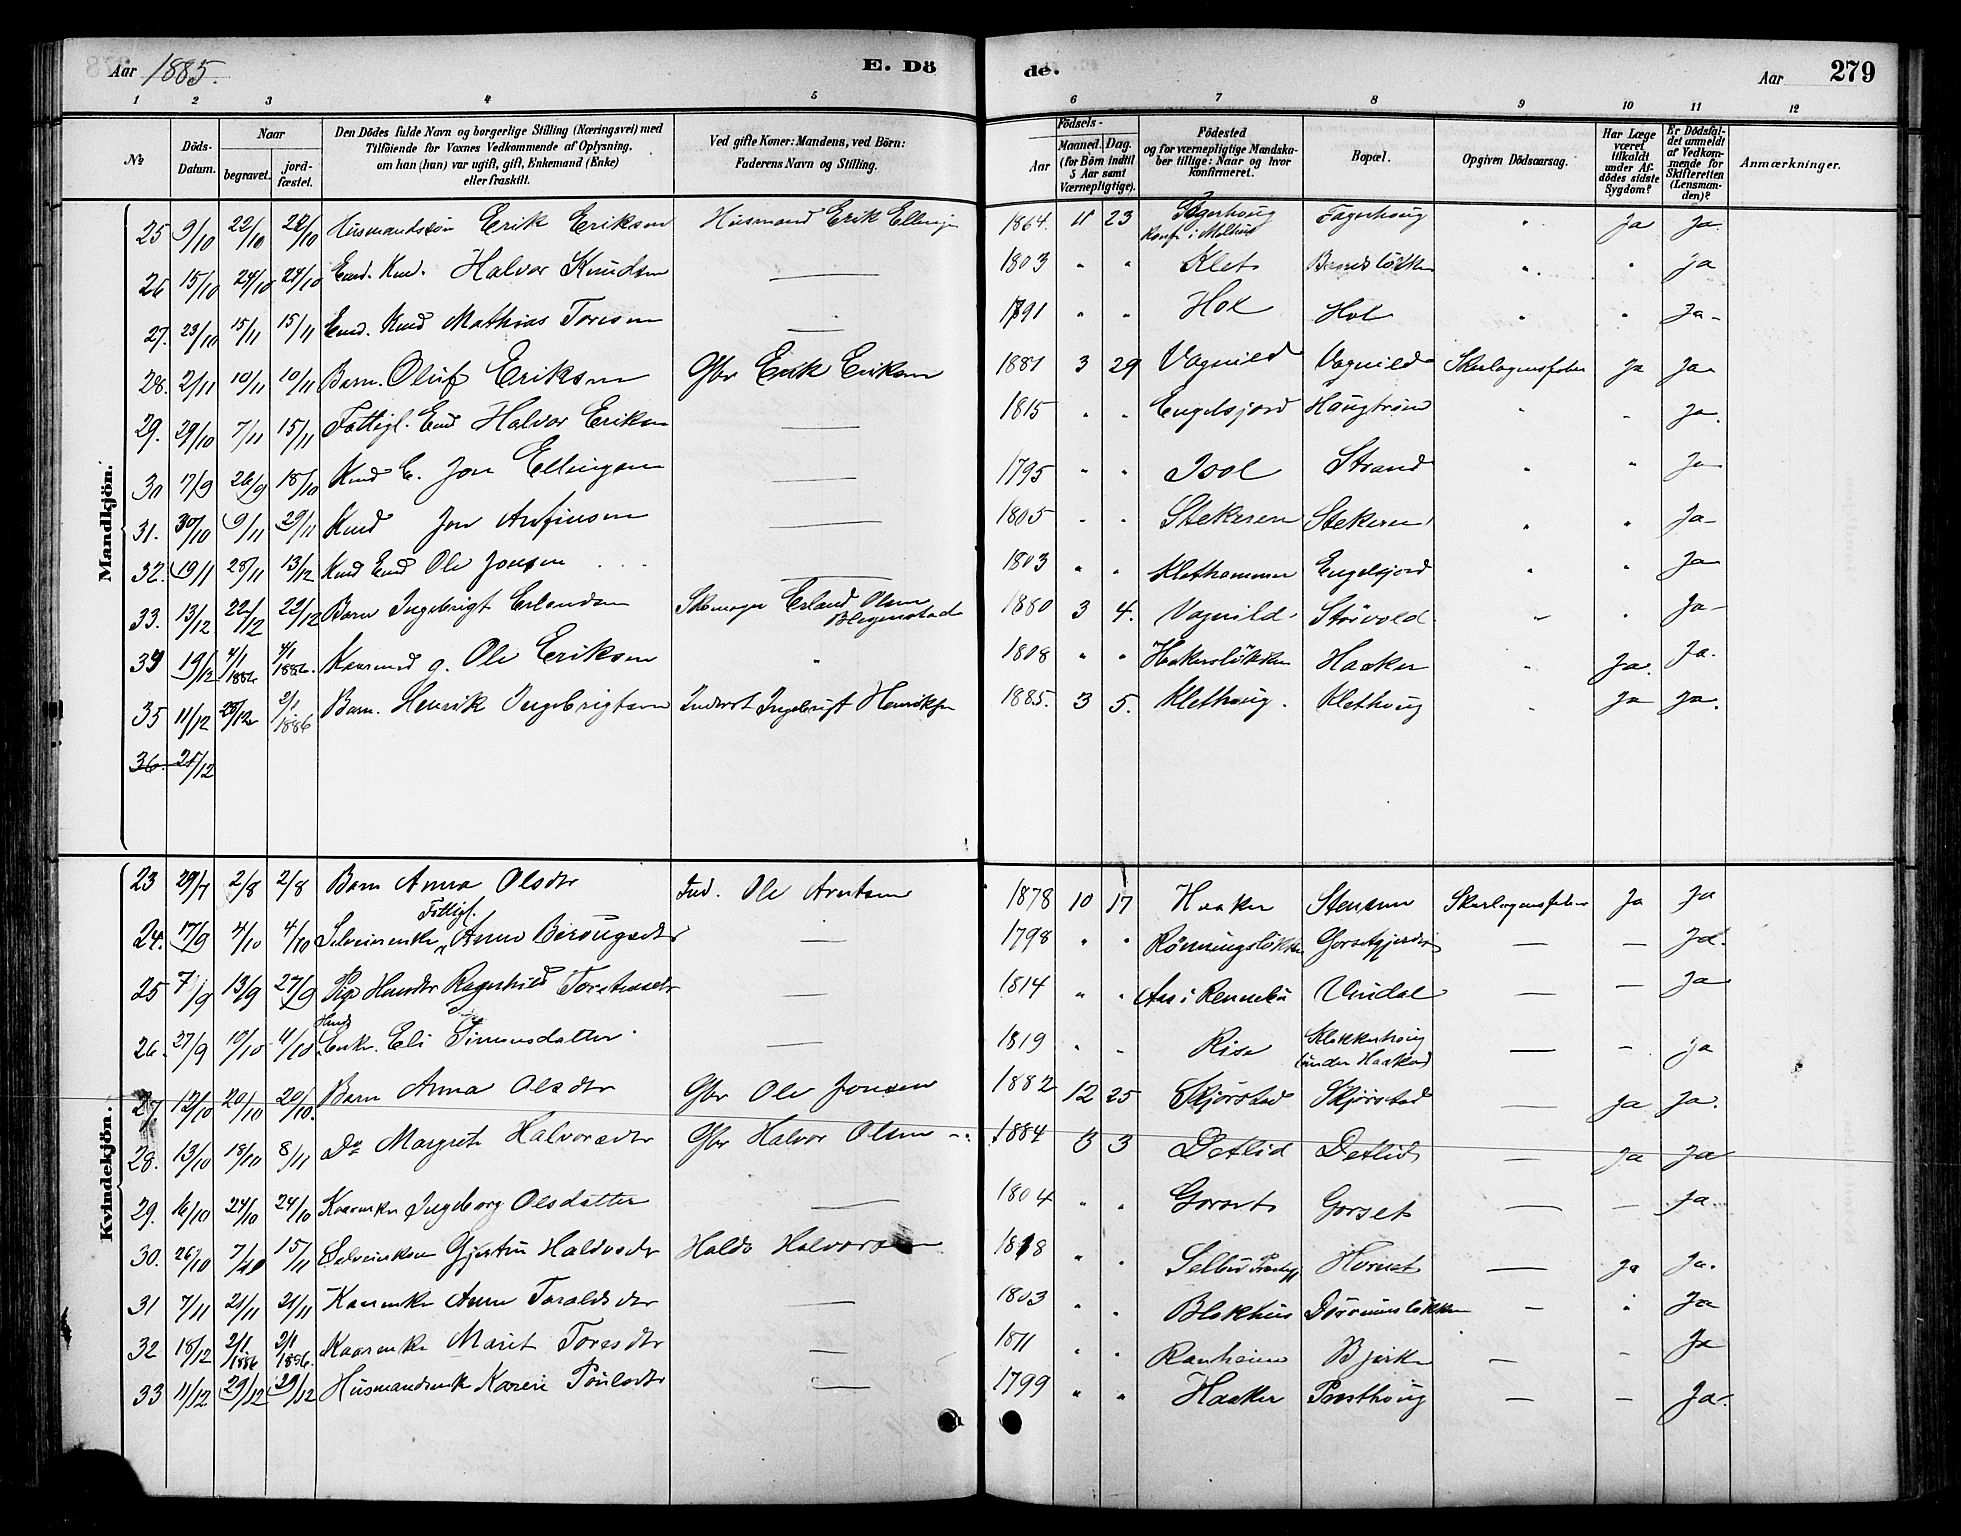 Aar 1885.
E. Dö
de.
Aar
279
1 2 3 4 5 6 7 8 9 10 11 12
No
Döds-Datum.
Naar
begravet.
jordfæstet.
Den Dödes fulde Navn og borgerlige Stilling (Næringsvei) med
Tilföiende for Voxnes Vedkommende af Oplysning,
om han (hun) var ugift, gift, Enkemand (Enke)
eller fraskilt.
Ved gifte Koner: Mandens, ved Börn:
Faderens Navn og Stilling.
Födsels-
Aar
Maaned. Dag.
(for Börn indtil
5 Aar samt
Værnepligtige).
Födested
og for værnepligtige Mandska-
ber tillige: Naar og hvor
konfirmeret.
Bopæl.
Opgiven Dödsaarsag.
Har Læge
været
tilkaldt
under Af-
dödes sidste
Sygdom?
Er Dödsfal-
det anmeldt
af Vedkom-
mende for
Skifteretten
(Lensman-
den)?
Anmærkninger.
Mandkjön.
25 9/10 22/10 22/10 Husmandssön Erik Eriksen Husmand Erik 1864. 11 23 Fagerhoug Konf i Melhus Fagerhoug " Ja Ja.
26 15/10 24/10 24/10 Halvor Knudsen — 1803 " " Klet " " ja
27. 23/10 15/11 15/11 Mathias Toresen — 1791 " " Hol Hol " " Ja-
28. 2/11 10/11 10/11 Barn. Oluf Eriksen Gbr Erik Eriksen 1881 3 29 Vagnild Vognild Skarlagensfeber Ja Ja
29. 29/10 7/11 15/11 Fattigl. Halvor Eriksen — 1815 " " Engelsjord Haugtrøen " " Ja.
30 17/9 26/9 18/10 Jon Ellingsen — 1795 " " Isol Strand " " Ja
31. 30/10 9/11 29/11 Jon Arnfinsen — 1805 " " Stekeren Stekeren " " Ja-
32. 19/11 28/11 13/12 Ole Jonsen — 1803 " " Klethammer Engelsjord " " Ja
33. 13/12 22/12 22/12 Barn Ingebrigt Erlandsen Skomager Erland Olsen 1880 3 4. Vagnild. Störvold " " Ja-
34 19/12 4/1 1886 4/1 1886. g. Ole Eriksen " 1808 " " Haakersløkken Haaker " Ja. Ja.
35 11/12 23/12 2/1 1886 Barn. Henrik Ingebrigtsen Inderst Ingebrigt Henriksen 1885. 3 5. Klethoug. Klethoug " Ja Ja.
36. 25/12
Kvindekjön.
23 29/7 2/8 2/8 Barn Anna Olsdtr Ind. Ole Arntsen 1878 10 17 Haaker Stensen Skarlagensfeber Ja Ja
24. 17/9 4/10 4/10 Selveierenke Fattigl. Anne — 1798 " " — — Ja.
25 7/9 13/9 27/9 Pige Ragnhild Torstensdtr — 1814 " " Aas i Rennebu Vindal — — Ja
26. 27/9 10/10 11/10 Huus Enke. Eli Simensdatter — 1819 " " Rise Klokkerhoug under Haaker — — ja
27. 12/10 20/10 20/10. Barn Anna Olsdtr Gbr Ole Jonsen 1882 12 25 Skjörstad Skjörstad Ja Ja.
28. 13/10 18/10 8/11 Do Margrete Halvorsdtr Gbr Halvor Olsen 1884 3 Detlid Detlid — Ja Ja
29. 16/10 24/10 24/10 Kaarenke Ingeborg Olsdatter — 1804 " " Gorset Gorset — — Ja
30. 26/10 7/11 15/11 Haldosdtr Haldo Halvorsen 1818 " " Selbu — Ja Ja.
31 7/11 21/11 21/11 Kaarenke Anne Toraldsdtr — 1803 " " Blekhus — " Ja
32 18/12 2/1 1886 2/1 1886. Kaarenke Marit Toresdtr — 1811 " " Ranheim Bjerke — — Ja
33 11/12 29/12 29/12 Husmandsenk Karen Poulsdtr — 1799 " " Haaker Presthoug — — Ja.